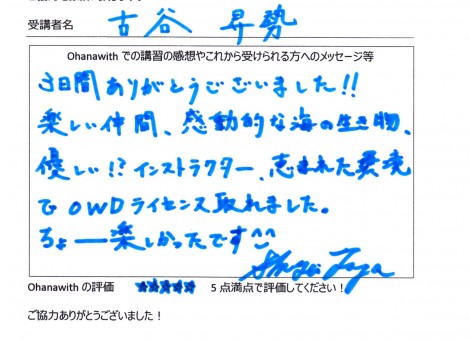 受講者名 古谷 昇勢
Ohanawith での講習の感想やこれから受けられる方へのメッセージ等
3日間ありがとうございました!!
楽しい仲間、感動的な海の生き物、
優しい!?インストラクター、恵まれた環境
で OWDライセンス取れました。
ちょー楽しかったです^^
Ohanawith の評価 ★★★★★ 5 点満点で評価してください!
ご協力ありがとうございました!